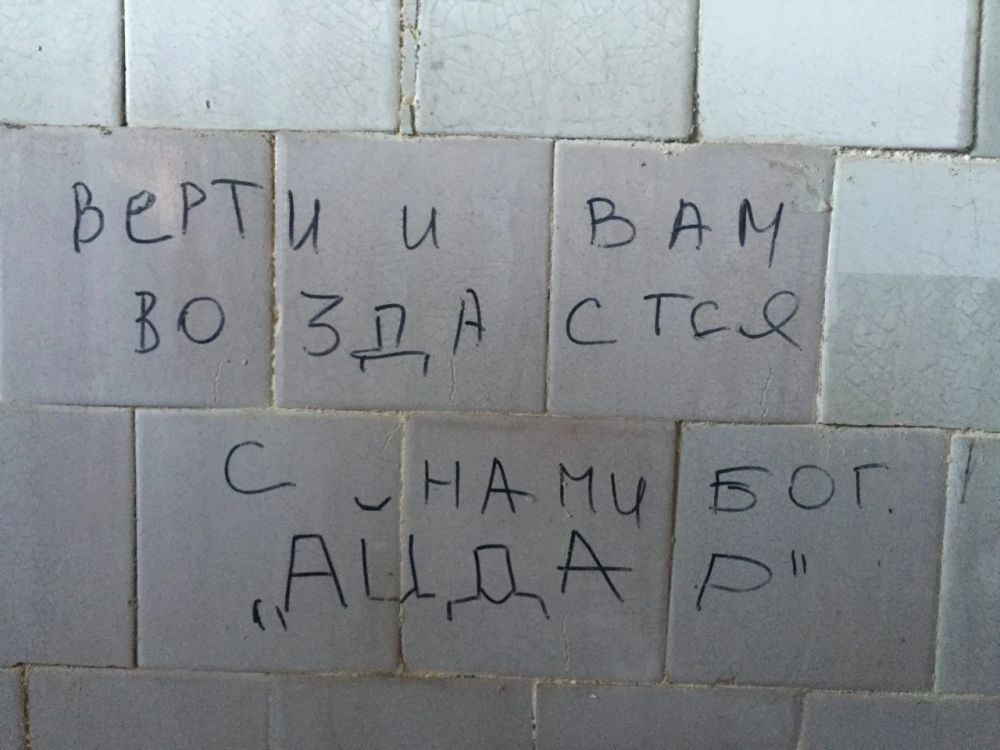 ВЕРТИ И ВАМ
ВОЗДАСТСЯ
С НАМИ БОГ.
„АЙДАР"